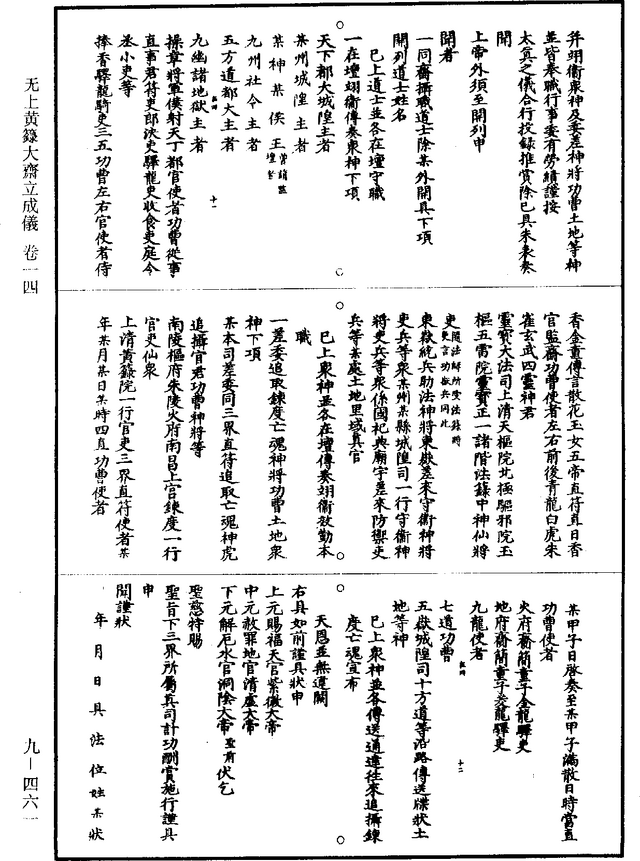 无上黄籙大齋立成儀 卷一四
九—四六一
并翊衛衆神及委差神將功曹土地等神
並皆奉職行事委有勞績謹按
太真之儀合行校錄推賞除已具朱表奏
聞
上帝外須至開列申
聞者
一同齋攝職道士除某外開具下項
開列道士姓名
已上道士並各在壇守職
一在壇翊衛傳奏衆神下項
天下都大城隍主者
某州城隍主者
某神某侯王
九州社令主者
五方道都大主者
九幽諸地獄主者
操章將軍僕射天丁都官使者功曹從事
直事君符吏郎決吏驛龍吏收食吏庭令
丞小吏等
捧香驛龍騎吏三五功曹左右官使者侍
香金童傳言散花玉女五帝直符直日香
官監齋功曹使者左右前後青龍白虎朱
雀玄武四靈神君
靈寶大法司上清天樞院北極驅邪院玉
樞五雷院靈寶正一諸階法籙中神仙將
吏
東嶽統兵助法神將東嶽差來守衛神將
吏兵等衆某州某縣城隍司一行守衛神
將吏兵等衆係國祀典廟宇差來防禦吏
兵等某處土地里域真官
已上衆神並各在壇傳奏翊衛效勤本
職
一差委追取鍊度亡魂神將功曹土地衆
神下項
某本司差委同三界直符追取亡魂神虎
追攝官君功曹神將等
南陵樞府朱陵火府南昌上宮鍊度一行
官吏仙衆
上清黄籙院一行官吏三界直符使者某
年某月某日某時四直功曹使者
某甲子日啓奏至某甲子滿散日時當直
功曹使者
火府齋簡童子金龍驛吏
地府齋簡童子金龍驛吏
九龍使者
七道功曹
五嶽城隍司十方道等沿路傳送牒狀土
地等神
已上衆神並各傳送通達往來追攝鍊
度亡魂宣布
天恩並無違闕
右具如前謹具狀申
上元賜福天官紫微大帝
中元赦罪地官清虛大帝
下元解厄水官洞陰大帝 聖前伏乞
聖慈特賜
聖旨下三界所屬真司計功酬賞施行謹具
申
聞謹狀
年 月 日具法位姓某狀